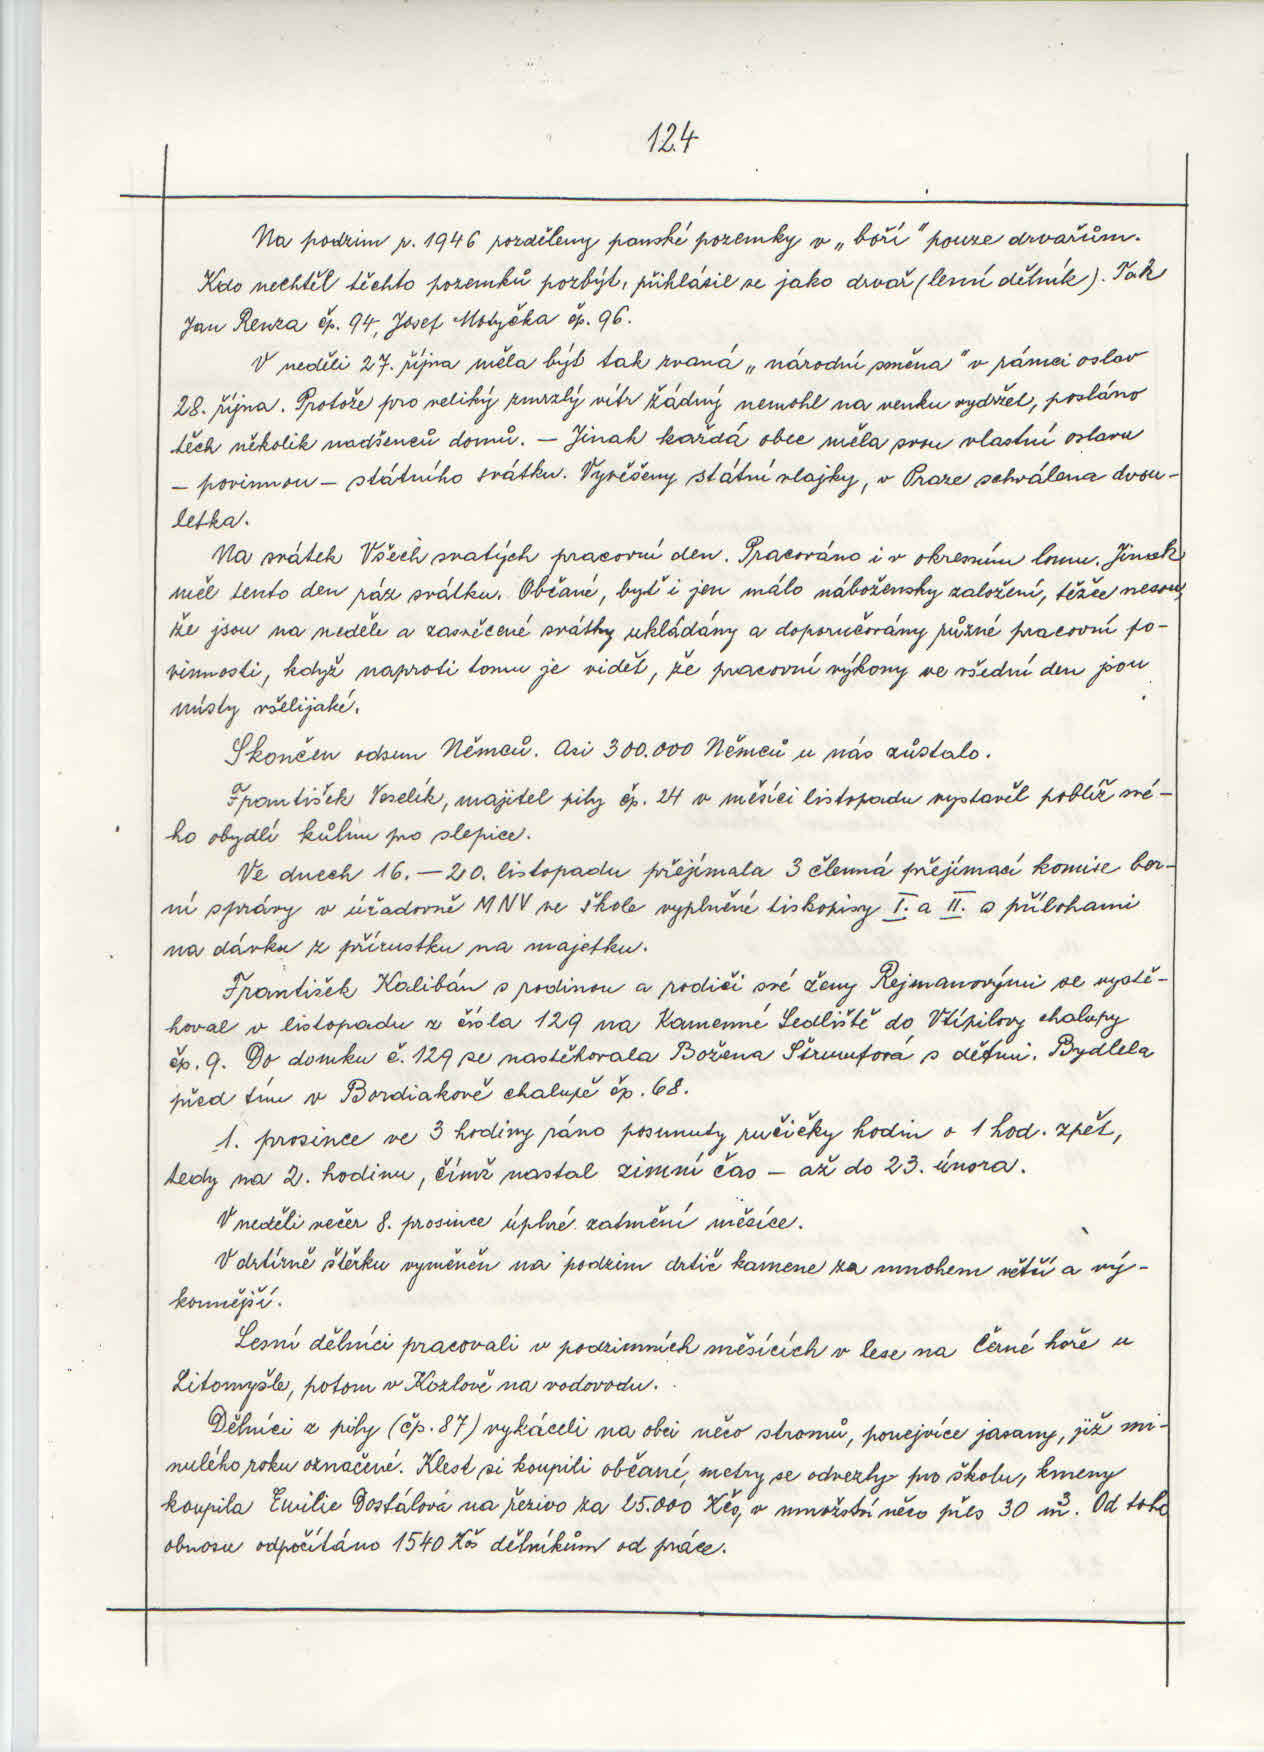 124
Na podzim r. 1946 rozděleny panské pozemky v „boří" pouze drvařům.
Kdo nechtěl těchto pozemků pozbýt, přihlásil se jako drvař (lesní dělník). Tak
Jan Renza čp. 94, Josef Motyčka čp. 96.
V neděli 27. října měla být tak zvaná „národní směna" v rámci oslav
28. října. Protože pro veliký zmrzlý vítr žádný nemohl na venku vydržet, posláno
těch několik nadšenců domů. – Jinak každá obec měla svou vlastní oslavu
– povinnou – státního svátku. Vyvěšeny státní vlajky, v Praze schválena dvou-
letka.
Na svátek Všech svatých pracovní den. Pracováno i v okresním lomu. Jinak
měl tento den ráz svátku. Občané, byť i jen málo nábožensky založení, těžce nesou,
že jsou na neděle a zasvěcené svátky ukládány a doporučovány různé pracovní po-
vinnosti, když naproti tomu je vidět, že pracovní výkony ve všední den jsou
místy všelijaké.
Skončen odsun Němců. Asi 300.000 Němců u nás zůstalo.
František Veselík, majitel pily čp. 24 v měsíci listopadu vystavěl poblíž své-
ho obydlí kůlnu pro slepice.
Ve dnech 16. – 20. listopadu přejímala 3 členná přejímací komise ber-
ní správy v úřadovně MNV ve škole vyplněné tiskopisy I. a II. s přílohami
na dávku z přírustku na majetku.
František Kalibán s rodinou a rodiči své ženy Rejmanovými se vystě-
hoval v listopadu z čísla 129 na Kamenné Sedliště do Vtípilovy chalupy
čp. 9. Do domku č. 129 se nastěhovala Božena Štrumfová s dětmi. Bydlela
před tím v Bordiakově chalupě čp. 68.
1. prosince ve 3 hodiny ráno posunuty ručičky hodin o 1 hod. zpět,
tedy na 2. hodinu, čímž nastal zimní čas – až do 23. února.
V neděli večer 8. prosince úplné zatmění měsíce.
V drtírně štěrku vyměněn na podzim drtič kamene za mnohem větší a vý-
konnější.
Lesní dělníci pracovali v podzimních měsících v lese na Černé hoře u
Litomyšle, potom v Kozlově na vodovodu.
Dělníci z pily (čp. 87) vykáceli na obci něco stromů, ponejvíce jasany, již mi-
nulého roku označené. Klest si koupili občané, metry se odvezly pro školu, kmeny
koupila Emilie Dostálová na řezivo za 25.000 Kčs, v množství něco přes 30 m³. Od toho
obnosu odpočítáno 1540 Kčs dělníkům od práce.